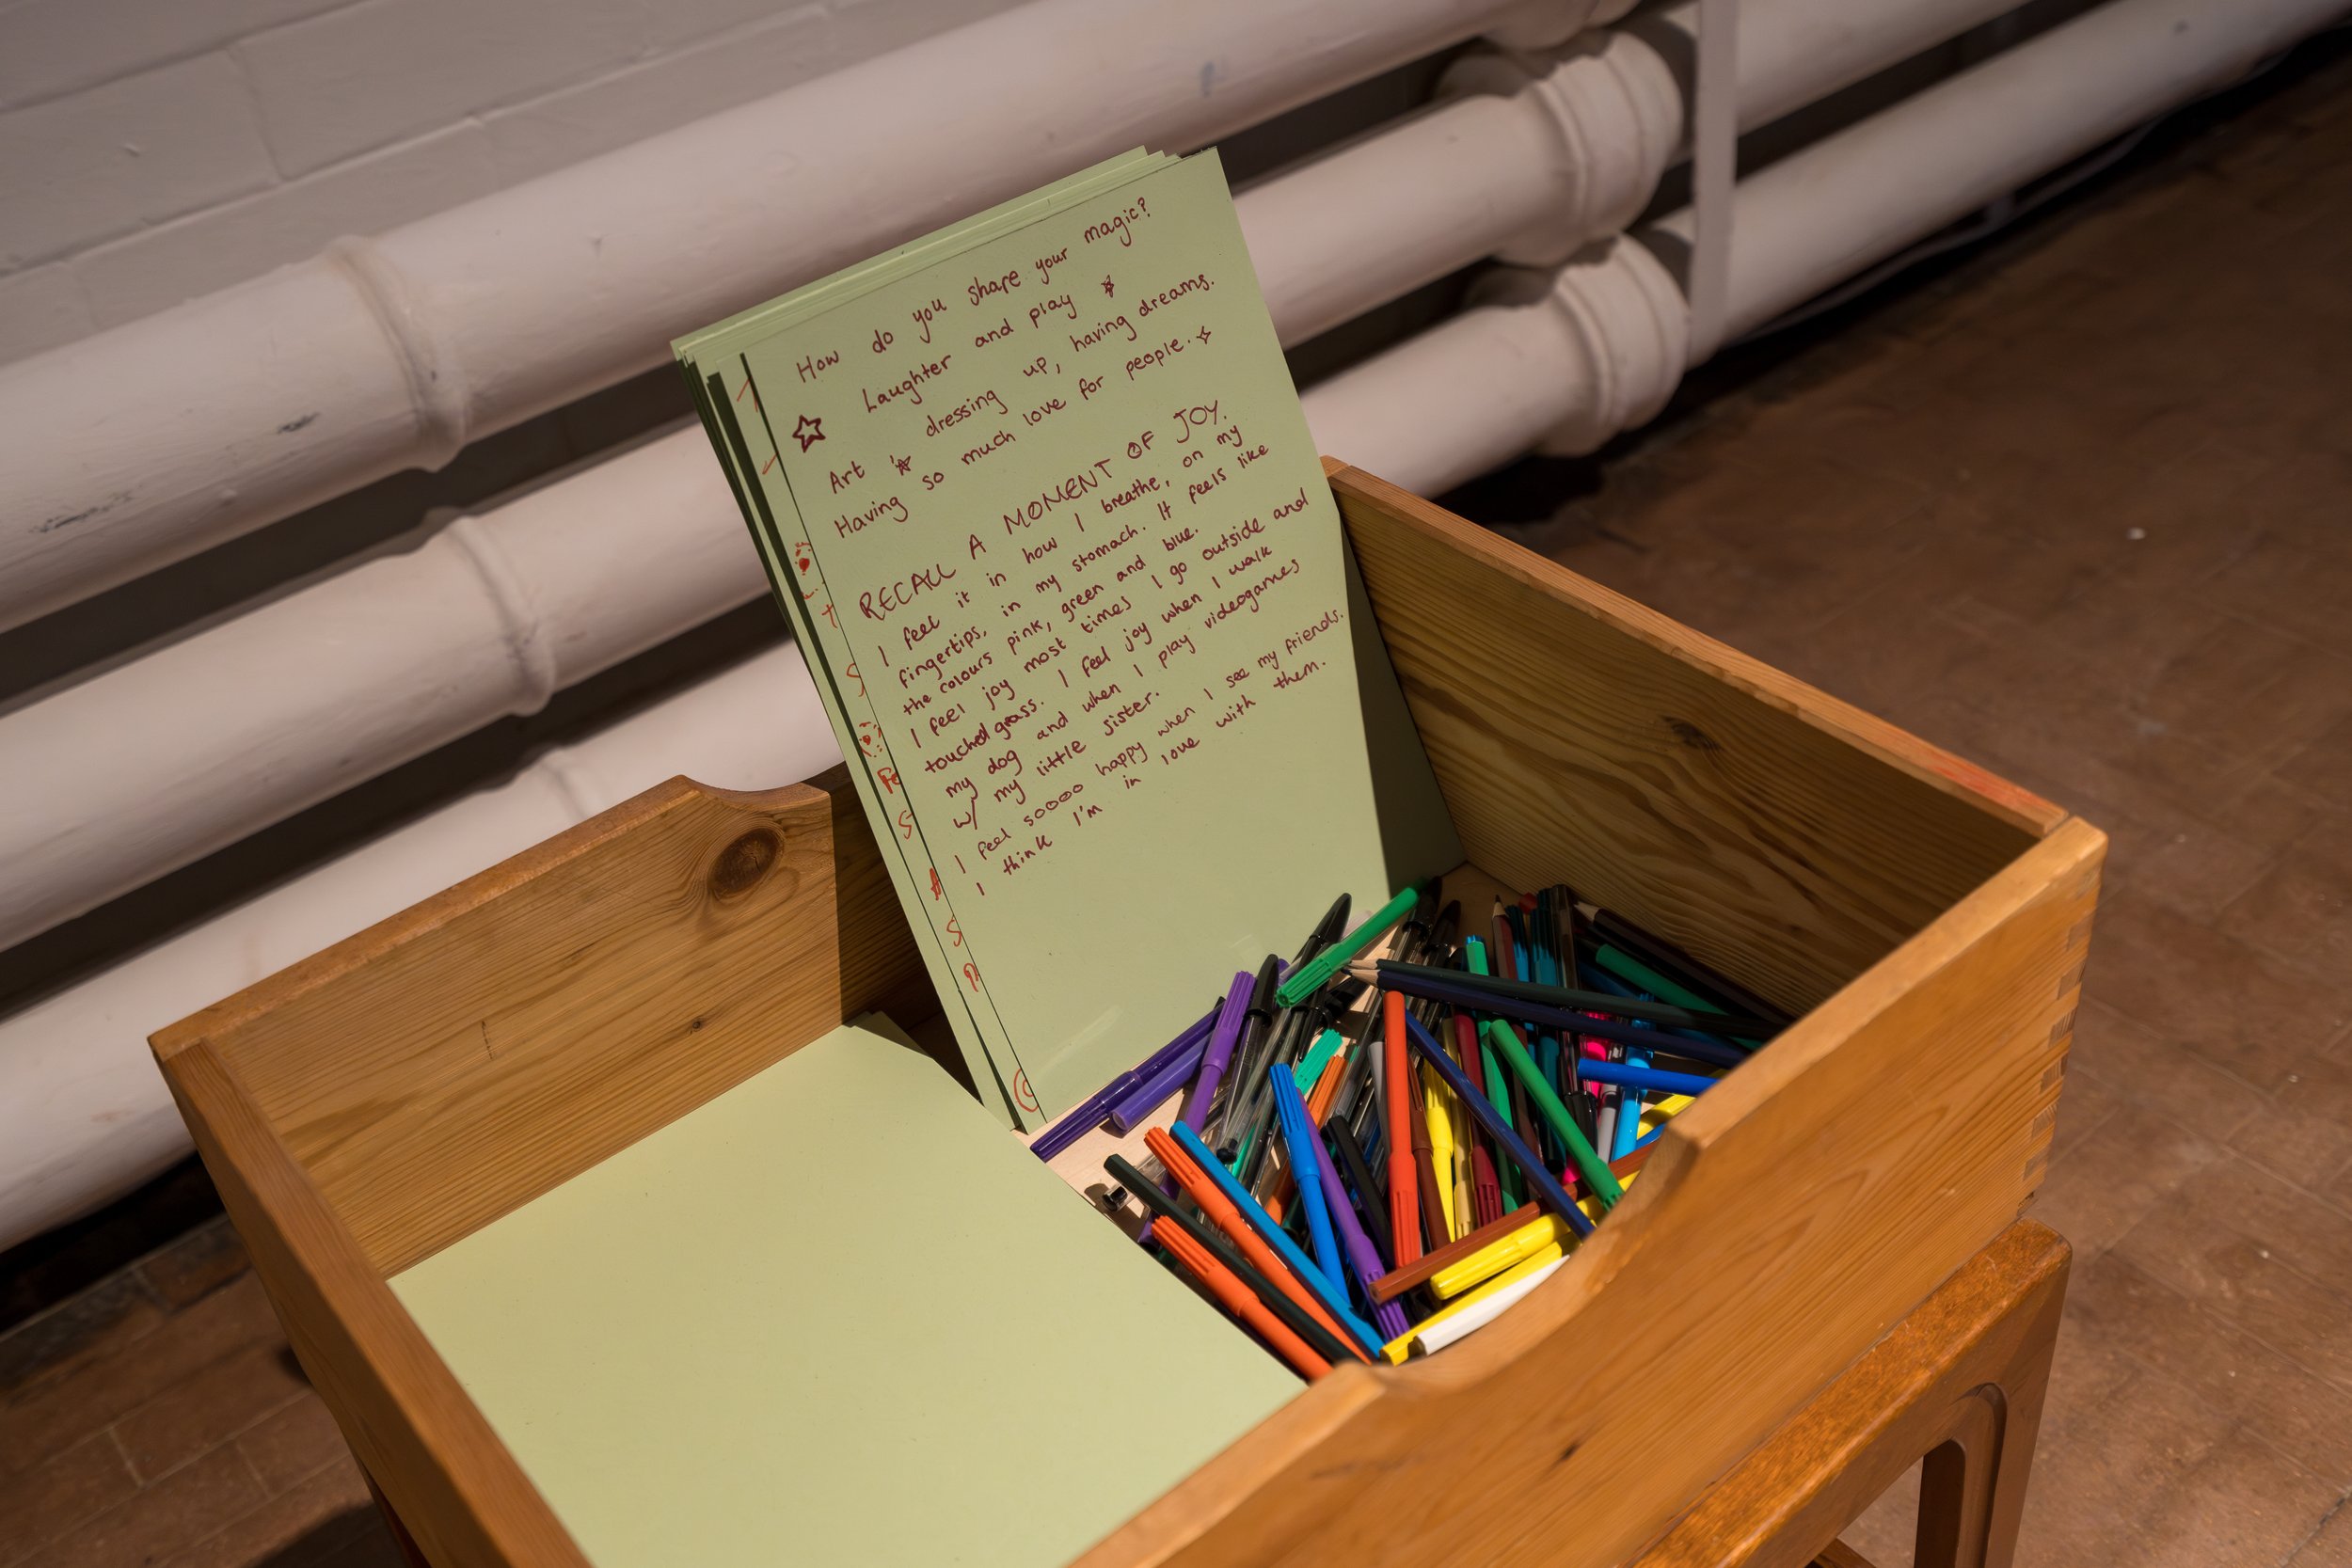 How do you share your magic?
Laughter and play
Art dressing up, having dreams.
Having so much love for people.
RECALL A MOMENT OF JOY.
I feel it in how I breathe, on my
fingertips, in my stomach. It feels like
the colours pink, green and blue.
I feel joy most times I go outside and
touched grass. I feel joy when I walk
my dog and when I play videogames
w/ my little sister.
I feel soooo happy when I see my friends.
I think I'm in love with them.